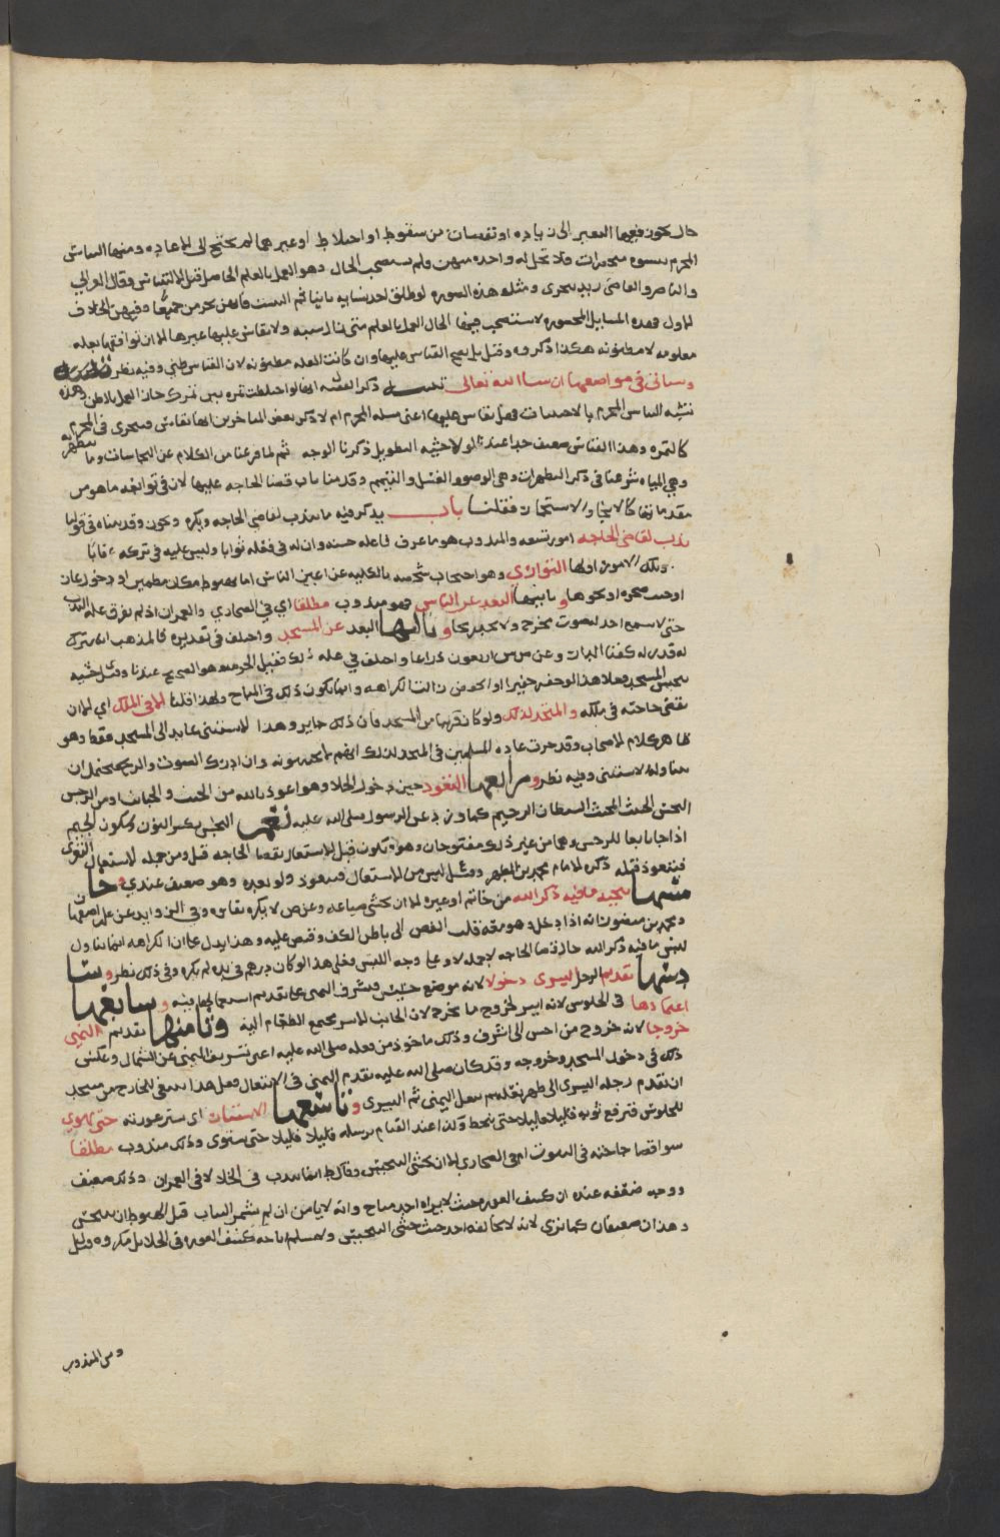 حال كون فيهما التغير الى زياده او نقصان من سقوط او اختلاط او غير هما لم يحتج الى الاعاده ومنها القياس
المحرم بنسوه منحصرات فلا تحل له واحده منهن ولم يستصحب الحال وهو العمل بالعلم الحاصل قبل الالتباس وقال الوالي
والناصر والقاضي زيد يتحرى ومثله هذه الصوره لو طلق احد نسايه باينا ثم التبست فانهن يحرمن جميعا وفيهن الخلاف
الاول فهذه المسايل المحصوره لا يستصحب فيها الحال العمل بالعلم متى التبست ولا يقاس عليها غيرها الا ان توافقها بعله
معلومه لا مظنونه هكذا ذكروه وقيل بل يصح القياس عليها وان كانت العله مظنونه لان القياس ظني وفيه نظر
وسياتي في مواضعها ان شا الله تعالى تنبيه ذكر الفقيه انها لو اختلطت تمره بين تمرك جاز العمل بالظن وهذه
تشبه التباس المحرم بالاجنبيات فهل يقاس عليها اعني مسله المحرم ام لا ذكر بعض المتاخرين انها تقاس ويتحرى في المحرم
كالتمره وهذا القياس ضعيف جدا عندنا ولولا خشيه التطويل ذكرنا الوجه ثم لما فرغنا من الكلام عن النجاسات وما
وهي المياه شرعنا في ذكر التطهرات وهي الوضوء والغسل والتيمم وقدمنا باب قضا الحاجه عليها لان في توابعه ما هو من
مقدماتها كالاستنجا والاستجمار فقلنا باب يذكر فيه ما يندب لقاضي الحاجه ويكره ويجوز وقد بيناه في قولنا
ندب لقاضي الحاجه امور تسعه والمندوب هو ما عرف فاعله حسنه وان له في فعله ثوابا وليس عليه في تركه عقابا
وتلك الامور اولها التواري وهو احتجاب شخصه بالكليه عن اعين الناس اما بهبوط مكان مطمين او دخول غار
او جنب صخره او نحوها وثانيها البعد عن الناس فهو مندوب مطلقا اي في الصحاري والعمران اذ لم يفرق
حتى لا يسمع احد لصوت مخرج ولا يجد ريحا وثالثها البعد عن المسجد واختلف في تقديره فالمذهب
له قدر له كفنا الباب وعن اربعون ذراعا واختلف في عله ذلك فقيل الحرمه وهو الصحيح عندنا وقيل خشيه
تنجيس المسجد فعلى هذا لو حفر حفيرا او اكمه زالت الكراهه وانما يكون ذلك في المباح ولهذا قلنا الا في الملك اي الا ان
يقضي حاجته في ملكه والمتخذ لذلك ولو كان قريبا من المسجد فان ذلك جايز وهذا الاستثنى عايد الى المسجد فقط وهو
ظاهر كلام الاصحاب وقد جرت عاده المسلمين في المتخذ لذلك انهم لا يجنبونه وان ادرك الصوت والريح فيحتمل ان
يتناوله الاستثنى وفيه نظر ورابعها التعوذ حين دخول الخلا وهو اعوذ بالله من الخبث والخبايث ومن الرجس
النجس الخبيث المخبث الشيطان الرجيم كما ورد عن الرسول صلى الله عليه نعم النجس بكسر النون وسكون الجيم
اذا جا تابعا للرجس وهما من غير ذلك مفتوحان وهو يكون قبل الاشتغال بقضا الحاجه قيل ومن جمله الاشتغال
فيتعوذ قبله ذكره الامام محمد بن المطهر وقيل ليس من الاشتغال فيتعوذ ولو بعده وهو ضعيف عندي وخا
مسها تنحيه ما فيه ذكر الله من خاتم او غيره الا ان يخشى ضياعه وعن ص لا يكره بقاه وفي الزوايد عن
ومحمد بن منصور انه اذا دخل وهو معه قلب الفص الى باطن الكف وقبض عليه وهذا يدل على ان الكراهه انما تناول
لبس ما فيه ذكر الله حال قضا الحاجه لا حمله لا على وجه اللبس فعلى هذا لو كان درهم في يده لم يكره وفي ذلك نظر وسا
دسها تقديم الرجل اليسرى دخولا لانه موضع خسيس وشرف اليمنى على تقديم استعمالها فيه وسابعها
اعتمادها في الجلوس لانه ايسر لخروج ما يخرج لان الجانب الايسر مجتمع الطعام اليه وثامنها تقديم اليمنى
خروجا لانه خروج من اخس الى اشرف وذلك ماخوذ من فعله صلى الله عليه اعني تشريف اليمنى عن الشمال وعكس
ذلك في دخول المسجد وخروجه وقد كان صلى الله عليه يقدم اليمنى في الانتعال فعلى هذا ينبغي للخارج من مسجد
ان يقدم رجله اليسرى الى ظهر نعله ثم ينعل اليمنى ثم اليسرى وتاسعها الاستتار اي ستر عورته حتى يهوي
للجلوس فيرفع ثوبه قليلا قليلا حتى ينحط وكذا عند القيام يرسله قليلا قليلا حتى يستوي وذلك مندوب مطلقا
سوا قضا حاجته في البيوت ام في الصحاري الا ان يخشى التنجس وقال ط انما يندب في الخلا لا في العمران وذلك ضعيف
ووجه ضعفه عنده ان كشف العوره حيث لا يراه احد مباح وانه لا يامن ان لم يشمر الثياب قبل الهبوط ان يتنجس
وهذان ضعيفان كما نرى لانه لا يخالفه احد حيث خشي التنجس ولا نسلم اباحه كشف العوره في الخلا بل مكروه وقيل
ومن المندوب